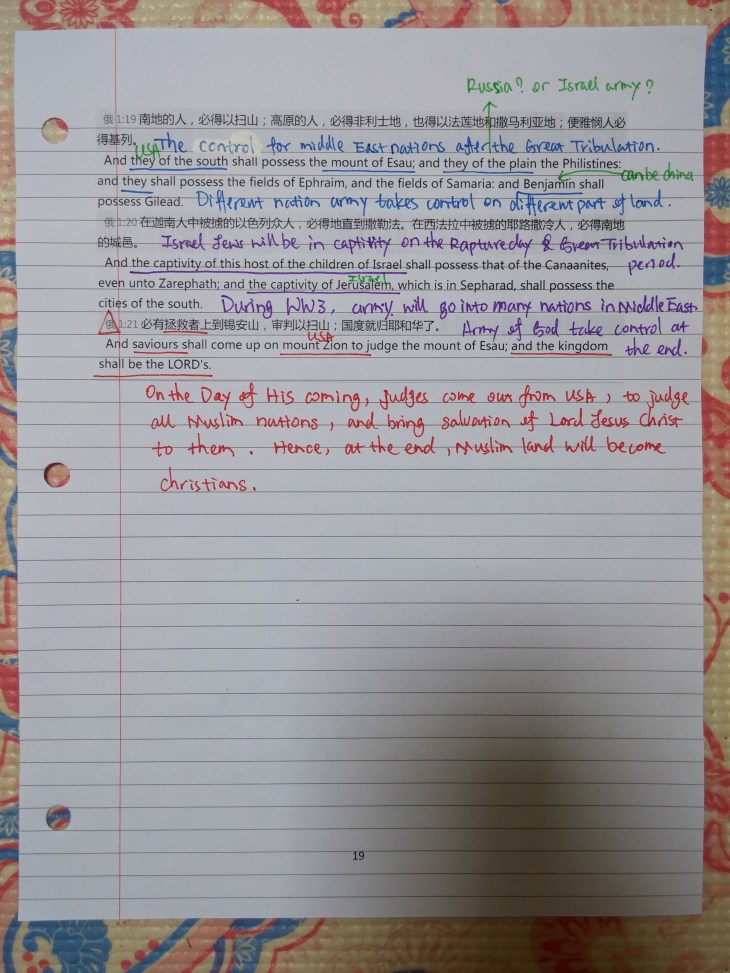 Russia? or Israel army?
俄 1:19 南地的人，必得以扫山；高原的人，必得非利士地，也得以法莲地和撒马利亚地；便雅悯人必
得基列。 The control for middle East nations after the Great Tribulation.
USA
And they of the south shall possess the mount of Esau; and they of the plain the Philistines:
can be china
and they shall possess the fields of Ephraim, and the fields of Samaria: and Benjamin shall
possess Gilead. Different nation army takes control on different part of land.
俄 1:20 在迦南人中被掳的以色列众人，必得地直到撒勒法。在西法拉中被掳的耶路撒冷人，必得南地
的城邑。 Israel Jews will be in captitity on the Rapture day & Great Tribulation
And the captivity of this host of the children of Israel shall possess that of the Canaanites, period.
Israel
even unto Zarephath; and the captivity of Jerusalem, which is in Sepharad, shall possess the
cities of the south. During WW3, army will go into many nations in Middle East
俄 1:21 必有拯救者上到锡安山，审判以扫山；国度就归耶和华了。 Army of God take control at
USA
And saviours shall come up on mount Zion to judge the mount of Esau; and the kingdom the end.
shall be the LORD's.
On the Day of His coming, judges come out from USA, to judge
all Muslim nations, and bring salvation of Lord Jesus Christ
to them. Hence, at the end, Muslim land will become
christians.
19